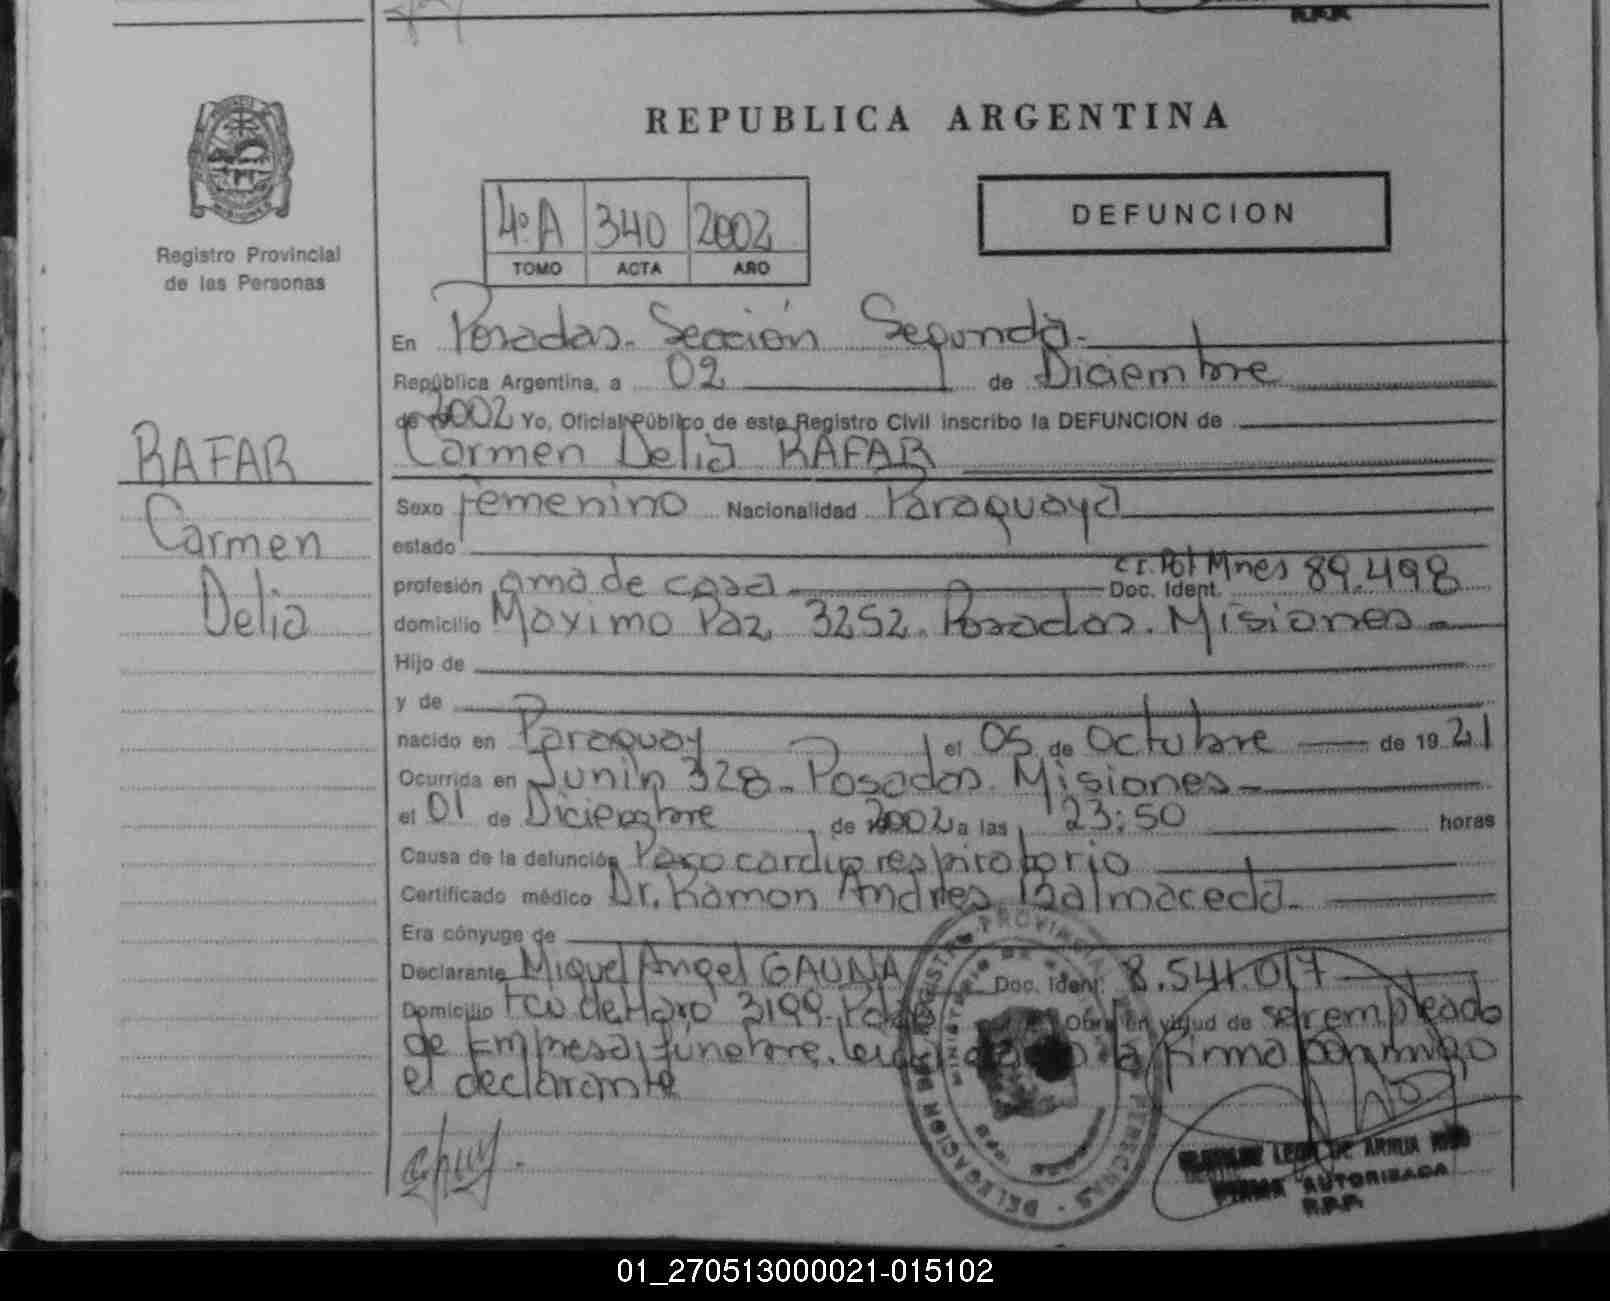 REPUBLICA ARGENTINA
MISIONES
Registro Provincial
de las Personas
4º A 340 2002
TOMO ACTA AÑO
DEFUNCION
En Posadas. Sección Segunda.
República Argentina, a 02 de Diciembre
de 2002 Yo, Oficial Público de este Registro Civil inscribo la DEFUNCION de
Carmen Delia RAFAR
RAFAR
Carmen
Delia
Sexo femenino Nacionalidad Paraguaya
estado
profesión ama de casa Doc. Ident. Cr. Pol Mnes 89.498
domicilio Maximo Paz 3252. Posadas. Misiones
Hijo de
y de
nacido en Paraguay el 05 de Octubre de 1921
Ocurrida en Junin 328. Posadas. Misiones
el 01 de Diciembre, de 2002 a las 23:50 horas
Causa de la defunción Paro cardio respiratorio
Certificado médico Dr. Ramon Andres Balmaceda
Era cónyuge de
Declarante Miguel Angel GAUNA Doc. Ident. 8.541.017
Domicilio Fco de Haro 3199. Obra en virtud de ser empleado
de Empresa funebre. la firma conmigo
el declarante
REGISTRO PROVINCIAL DE LAS PERSONAS · DELEGACION
MINISTERIO DE
LEON DE ARRUA
FIRMA AUTORIZADA
R.P.P.
01_270513000021-015102